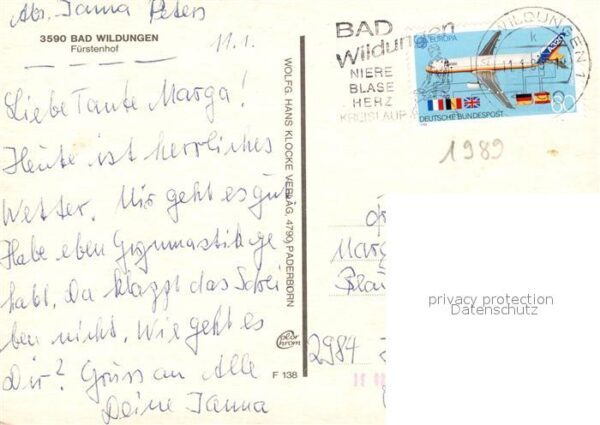 Abs. Janna Peters
3590 BAD WILDUNGEN
Fürstenhof
11.1.
Liebe Tante Marga!
Heute ist herrliches
Wetter. Mir geht es gut
Habe eben Gymnastik ge
habt. Da klappt das Schrei
ben nicht. Wie geht es
Dir? Gruss an Alle
Deine Janna
WOLFG. HANS KLOCKE VERLAG, 4790 PADERBORN
color
chrom
F 138
BAD
Wildungen
NIERE
BLASE
HERZ
KREISLAUF
WILDUNGEN 1
EUROPA
A320
60
DEUTSCHE BUNDESPOST
1989
Marg
2984
privacy protection
Datenschutz